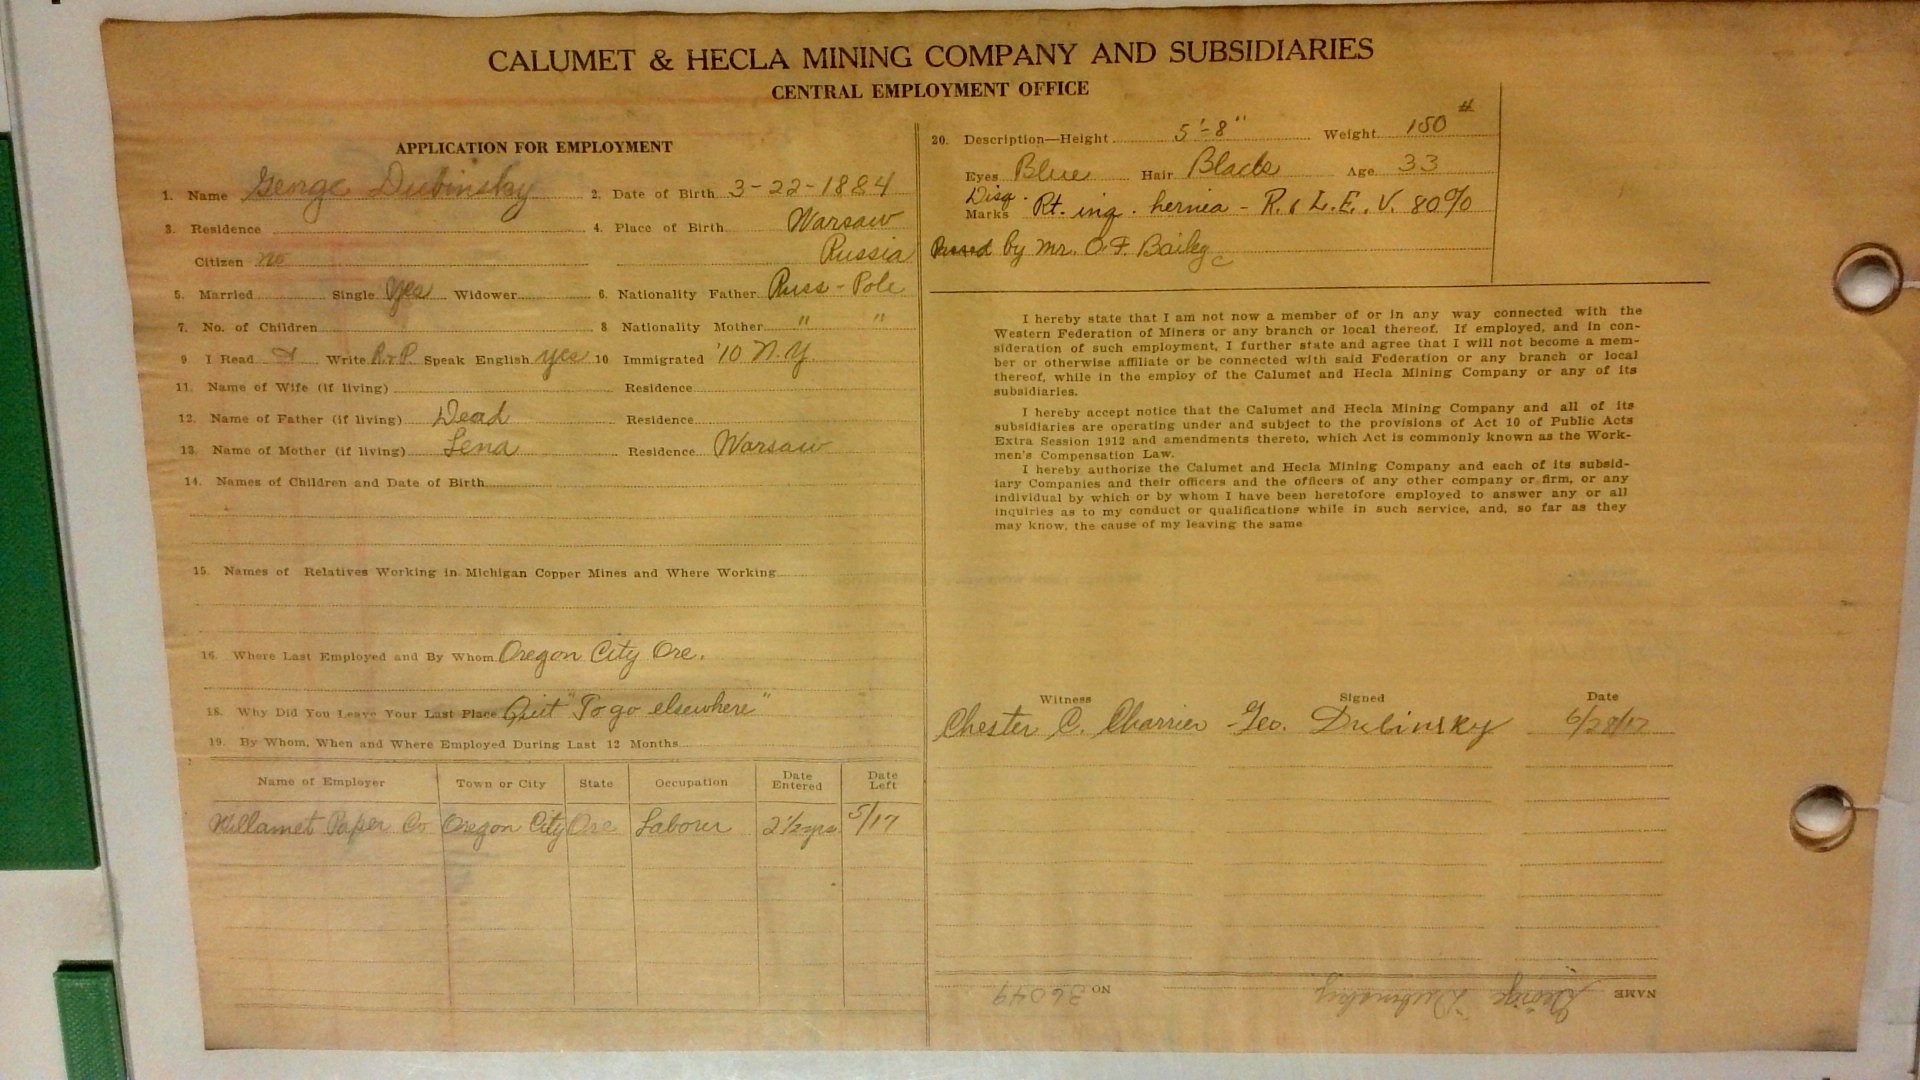 CALUMET & HECLA MINING COMPANY AND SUBSIDIARIES
CENTRAL EMPLOYMENT OFFICE
APPLICATION FOR EMPLOYMENT
1. Name George Dubinsky 2. Date of Birth 3-22-1884
3. Residence 4. Place of Birth Warsaw
Citizen no Russia
5. Married Single Yes Widower 6. Nationality Father Russ-Pole
7. No. of Children 8 Nationality Mother " "
9 I Read Write R & P Speak English yes 10 Immigrated '10 N.Y.
11. Name of Wife (if living) Residence
12. Name of Father (if living) Dead Residence
13. Name of Mother (if living) Lena Residence Warsaw
14. Names of Children and Date of Birth
15. Names of Relatives Working in Michigan Copper Mines and Where Working
16. Where Last Employed and By Whom Oregon City Ore.
18. Why Did You Leave Your Last Place Quit "To go elsewhere"
19. By Whom, When and Where Employed During Last 12 Months
Name of Employer Town or City State Occupation Date Entered Date Left
Willamet Paper Co Oregon City Ore Labour 2 1/2 yrs 5/17
20. Description—Height 5'-8" Weight 150 #
Eyes Blue Hair Black Age 33
Disq.
Marks Rt. ing. hernia - R. & L. E. V. 80%
Passed by Mr. O. F. Bailey
I hereby state that I am not now a member of or in any way connected with the
Western Federation of Miners or any branch or local thereof. If employed, and in con-
sideration of such employment, I further state and agree that I will not become a mem-
ber or otherwise affiliate or be connected with said Federation or any branch or local
thereof, while in the employ of the Calumet and Hecla Mining Company or any of its
subsidiaries.
I hereby accept notice that the Calumet and Hecla Mining Company and all of its
subsidiaries are operating under and subject to the provisions of Act 10 of Public Acts
Extra Session 1912 and amendments thereto, which Act is commonly known as the Work-
men's Compensation Law.
I hereby authorize the Calumet and Hecla Mining Company and each of its subsid-
iary Companies and their officers and the officers of any other company or firm, or any
individual by which or by whom I have been heretofore employed to answer any or all
inquiries as to my conduct or qualifications while in such service, and, so far as they
may know, the cause of my leaving the same
Witness Signed Date
Chester C. Charrier Geo. Dubinsky 6/28/17
NAME George Dubinsky NO 36049